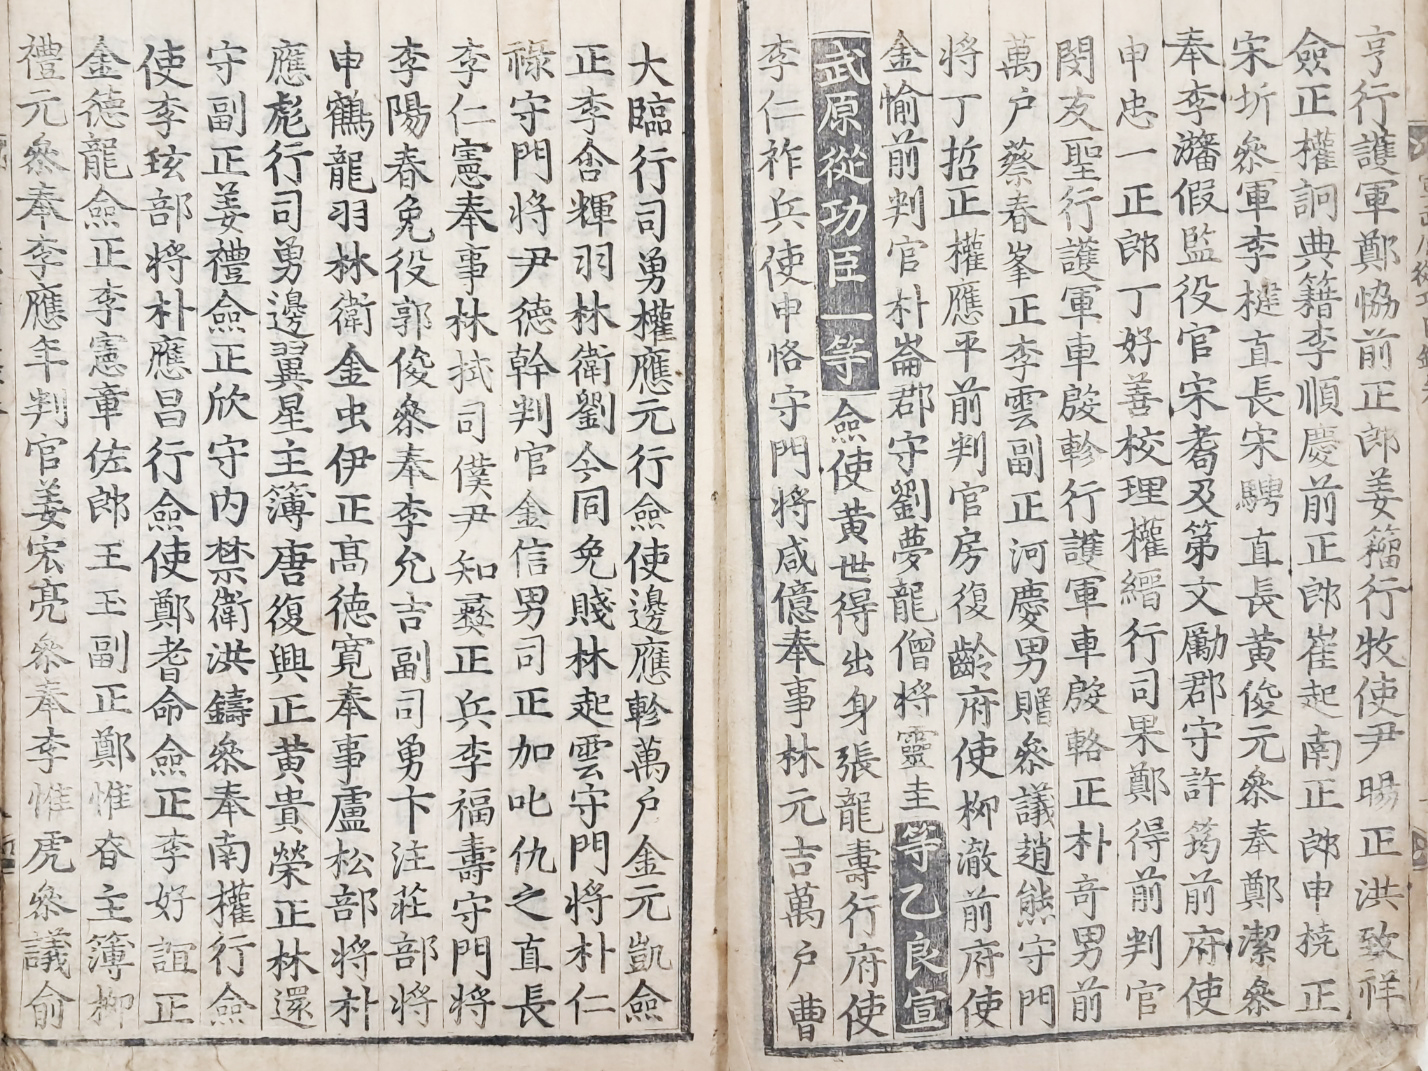 亨行護軍鄭恊前正郎姜籕行牧使尹暘正洪致祥
僉正權詗典籍李順慶前正郎崔起南正郎申橈正
宋圻叅軍李楗直長宋騁直長黄俊元叅奉鄭潔叅
奉李瀋假監役官宋耈及第文勵郡守許筠前府使
申忠一正郎丁好善校理權縉行司果鄭得前判官
閔友聖行護軍車殷軫行護軍車殷輅正朴竒男前
萬户蔡春峯正李雲副正河慶男贈叅議趙熊守門
將丁哲正權應平前判官房復齡府使柳澈前府使
金愉前判官朴崙郡守劉夢龍僧將靈圭等乙良宣
武原從功臣一等僉使黄世得出身張龍壽行府使
李仁祚兵使申恪守門將咸億奉事林元吉萬户曹
大臨行司勇權應元行僉使邊應軫萬户金元凱僉
正李舍輝羽林衛劉今同免賤林起雲守門將朴仁
祿守門將尹德幹判官金信男司正加叱仇之直長
李仁憲奉事林拭司僕尹知彛正兵李福壽守門將
李陽春免役郭俊叅奉李允吉副司勇卞注莊部將
申鶴龍羽林衛金虫伊正髙德寛奉事盧松部將朴
應彪行司勇邊翼星主簿唐復興正黄貴榮正林還
守副正姜禮僉正欣守内禁衛洪鑄叅奉南權行僉
使李玹部將朴應昌行僉使鄭耆命僉正李好誼正
金德龍僉正李憲章佐郎王玉副正鄭惟㫪主簿柳
禮元叅奉李應年判官姜宏亮叅奉李惟虎叅議俞